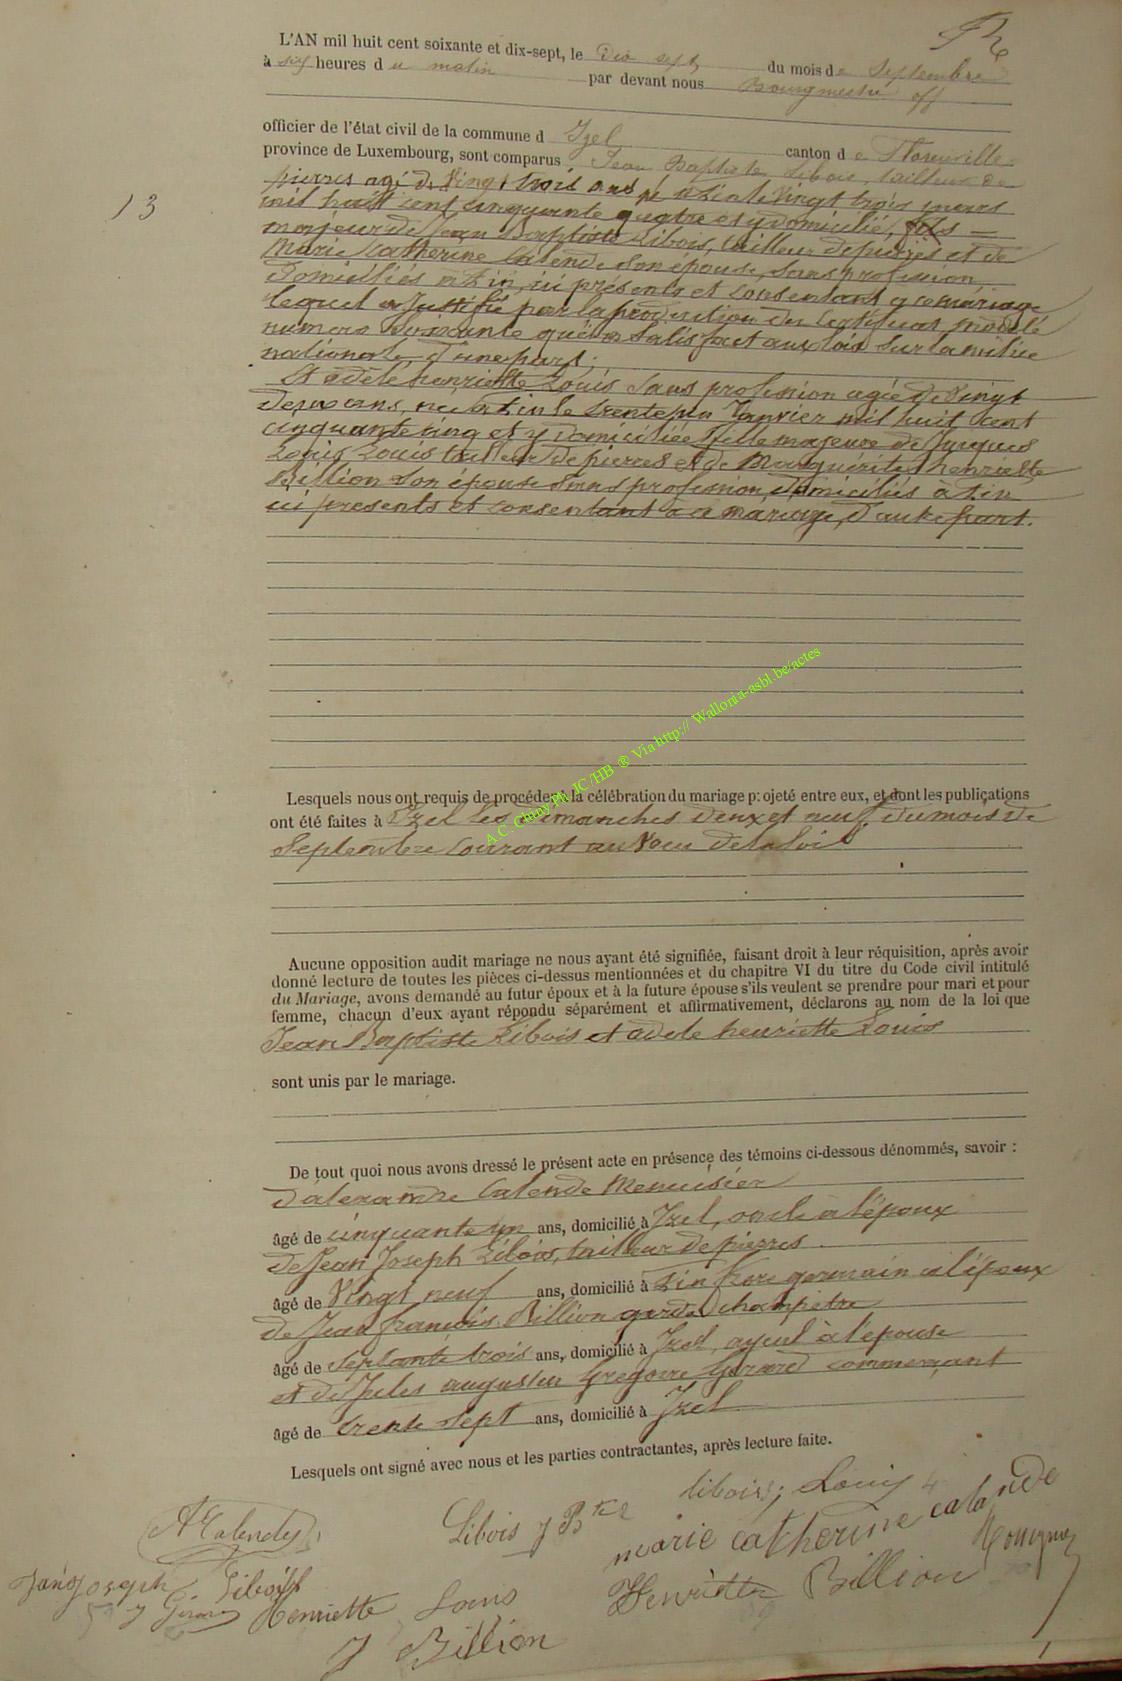 L'AN mil huit cent soixante et dix-sept, le dix sept du mois de Septembre
à six heures du matin par devant nous Bourgmestre off
officier de l'état civil de la commune d Izel canton de Florenville
province de Luxembourg, sont comparus Jean Baptiste Libois, tailleur de
13
pierres agé de vingt trois ans né à Zin le vingt trois mars
mil huit cent cinquante quatre et y domicilié, fils
majeur de Jean Baptiste Libois, tailleur de pierres et de
Marie Catherine Calende son épouse, sans profession
domiciliés à Zin, ici présents et consentant à ce mariage
lequel a justifié par la production du certificat modèle
numero soixante qu'il a satisfait aux lois sur la milice
nationale, d'une part;
Et adèle henriette Louis sans profession agée de vingt
deux ans, née à Zin le trente un Janvier mil huit cent
cinquante cinq et y domiciliée fille majeure de Jacques
Louis Louis tailleur de pierres et de Marguérite henriette
Billion son épouse sans profession, domiciliés à Zin
ici presents et consentant à ce mariage, d'autre part.
A.C. Chiny Ph. JC/HB ® Via http:// Wallonia-asbl.be/actes
Lesquels nous ont requis de procéder à la célébration du mariage projeté entre eux, et dont les publications
ont été faites à Izel les Dimanches deux et neuf du mois de
Septembre courant au vœu de la loi
Aucune opposition audit mariage ne nous ayant été signifiée, faisant droit à leur réquisition, après avoir
donné lecture de toutes les pièces ci-dessus mentionnées et du chapitre VI du titre du Code civil intitulé
du Mariage, avons demandé au futur époux et à la future épouse s'ils veulent se prendre pour mari et pour
femme, chacun d'eux ayant répondu séparément et affirmativement, déclarons au nom de la loi que
Jean Baptiste Libois et adele henriette Louis
sont unis par le mariage.
De tout quoi nous avons dressé le présent acte en présence des témoins ci-dessous dénommés, savoir :
d'alexandre Calende Menuisier
âgé de cinquante un ans, domicilié à Izel, oncle à l'époux
de Jean Joseph Libois, tailleur de pierres
âgé de Vingt neuf ans, domicilié à Zin frere germain à l'époux
de Jean françois Billion garde champêtre
âgé de septante trois ans, domicilié à Izel, ayeul à l'épouse
et de Jules augustin Gregoire Gerard commerçant
âgé de trente sept ans, domicilié à Izel
Lesquels ont signé avec nous et les parties contractantes, après lecture faite.
A Calende
Libois J Bte
libois, Louis
marie catherine calande
Jean Joseph Libois
J Gérard
Henriette Louis
Henriette Billion
J Billion